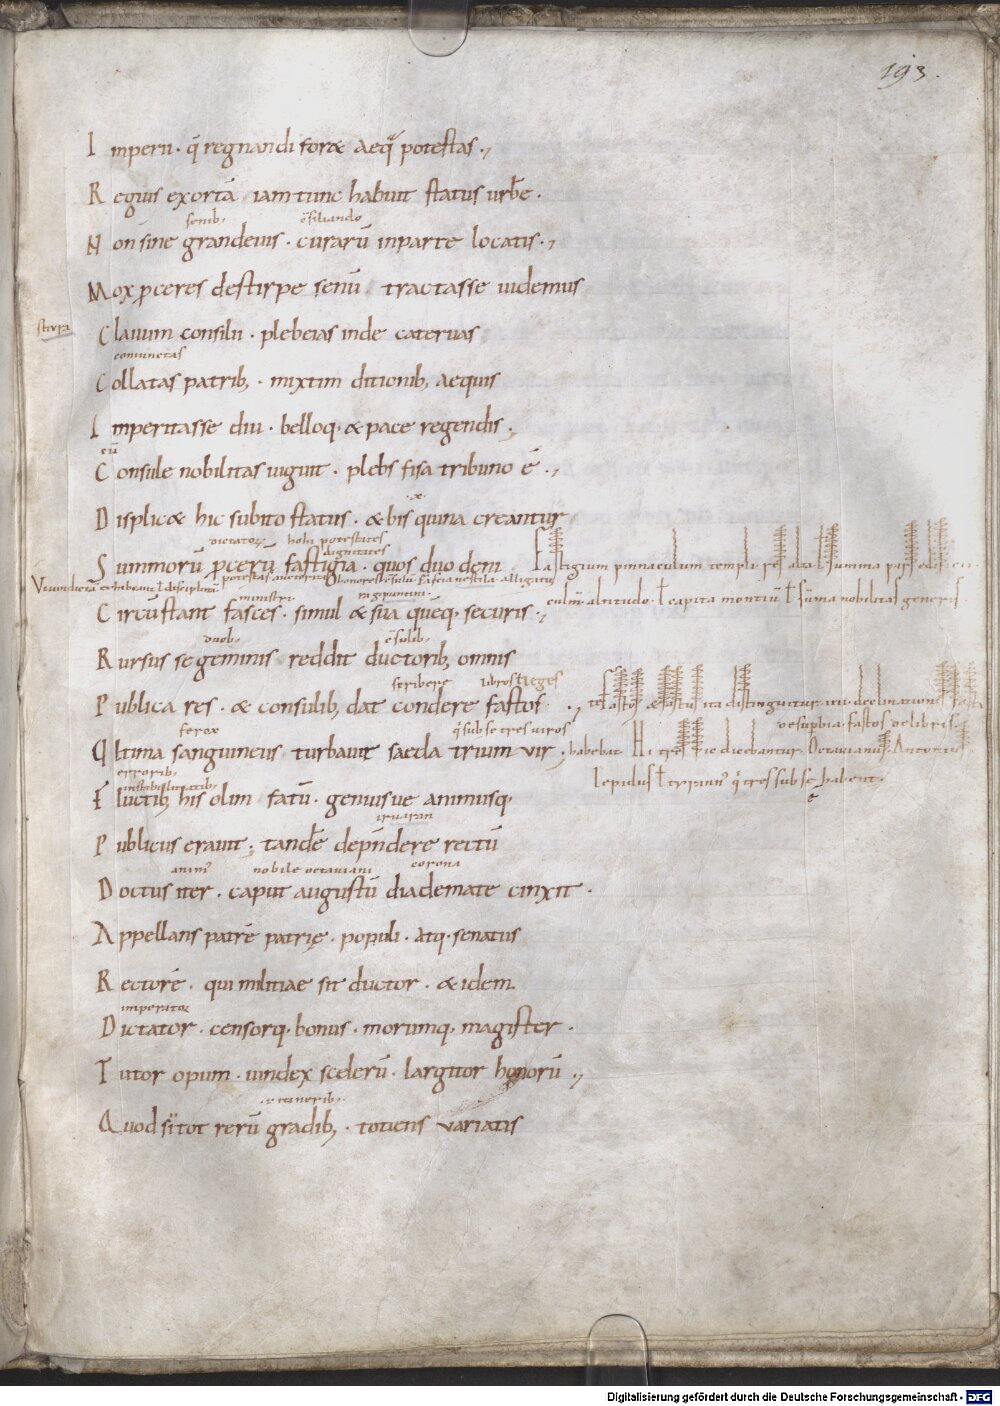 193.
Imperii · q̄ regnandi foret aeq̄ potestas ·,
Regius exortā iam tunc habuit status urbē ·
senib; c̄siliando
Non sine grandeuis · curarū in parte locatis ·,
Mox pceres de stirpe senū tractasse uidemus
stirpi
Clauum consilii · plebeias inde cateruas
coniunctas
Collatas patrib; · mixtim ditionib; aequis
Imperitasse diu · belloq· & pace regendis ;
cū
Consule nobilitas uiguit · plebs fisa tribuno ē ·,
Displicet hic subito status · & bis quina creantur
dictator
dignitates
Summorū pcerū fastigia · quos duodeni
Fastigium pinnaculum templi
culm̄ altitudo · ł capita montiū ł sūma nobilitas generis
ministri
Circūstant fasces · simul & sua quęq· securis ·,
duob; c̄sulib;
Rursus se geminis reddit ductorib; omnis
scribere libros ł leges
Publica res · & consulib; dat condere fastos ·,
fastos & fastus ita distinguitur
ferox q̄ sub se tres uiros
Ultima sanguineus turbauit saecla trium uir ;
habebat Hi tres sic dicebantur Octauianus Antonius
Lepidus
errorib;
Fluctib; his olim fatū · geniusue animusq·
Publicus errauit ; tandē dep̄ndere rectū
anim' nobile octauiani corona
Doctus iter · caput augustū diademate cinxit ·
Appellans patrē patrię · populi · atq· senatus
Rectorē · qui militiae sit ductor · & idem
imperator
Dictator · censorq· bonus · morumq· magister ·
Tutor opum · uindex scelerū · largitor honorū ·,
Quod si tot rerū gradib; · totiens uariatis
Digitalisierung gefördert durch die Deutsche Forschungsgemeinschaft - DFG